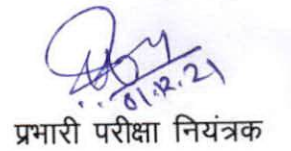 01.12.21
प्रभारी परीक्षा नियंत्रक